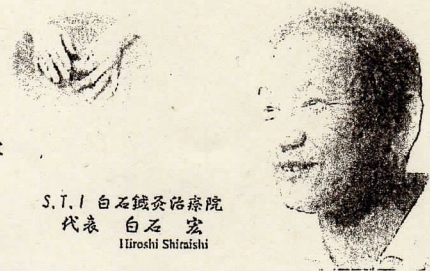 S.T.I 白石鍼灸治療院
代表 白石 宏
Hiroshi Shiraishi